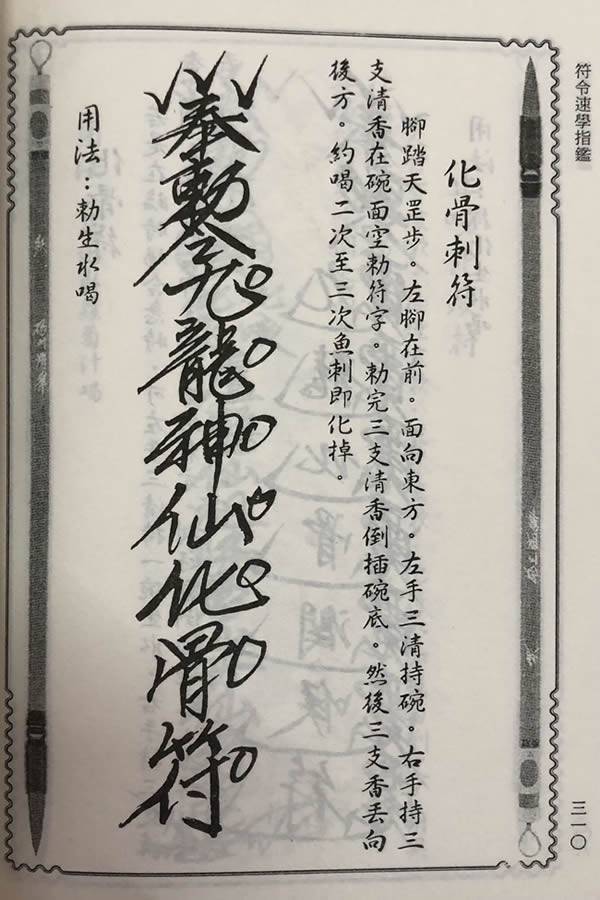 符令速學指鑑
化骨刺符
腳踏天罡步。左腳在前。面向東方。左手三清持碗。右手持三
支清香在碗面空勅符字。勅完三支清香倒插碗底。然後三支香丟向
後方。約喝二次至三次魚刺即化掉。
奉勅令九龍神仙化骨符
用法：勅生水喝
三一〇